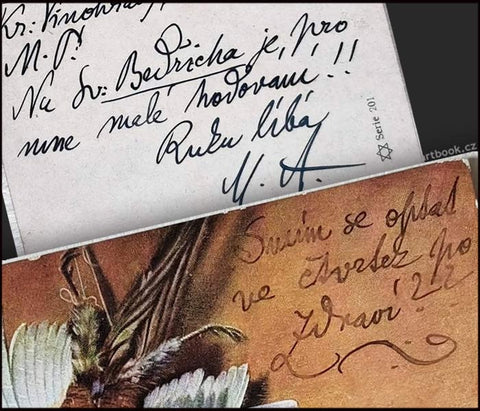 Kr. Vinohrady
M. P.
Na Sv: Bedřicha je, pro
mne malé hodování!!
Ruku líbá
M. A.
Serie 201
artbook.cz
Smím se optat
ve čtvrtek po
zdraví??